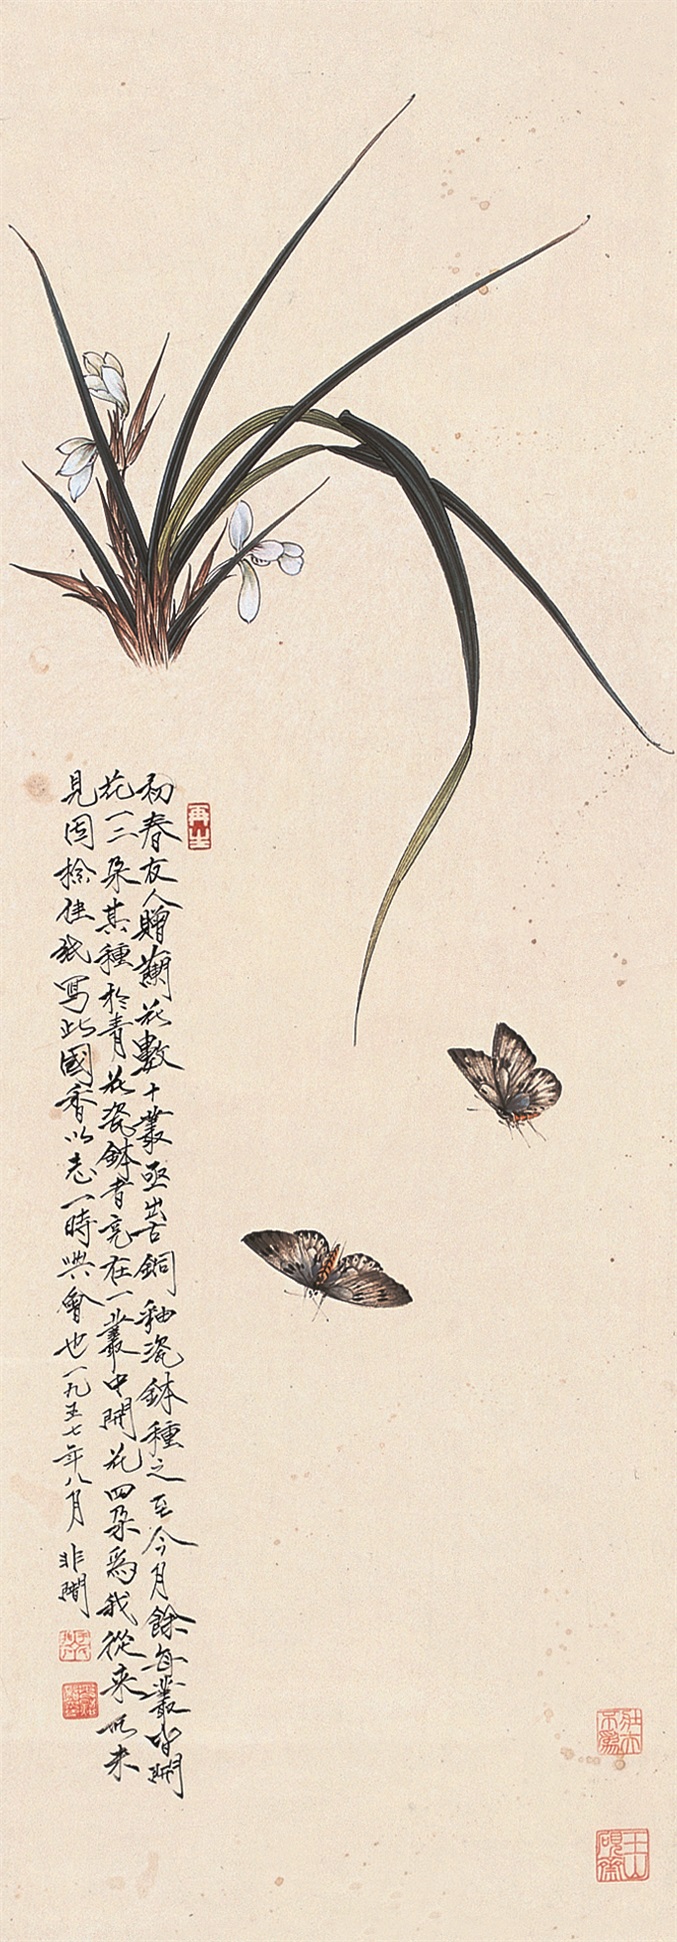 再生
初春友人贈蘭花數十叢亟出舊銅釉瓷鉢種之至今月餘每叢皆開
花一二朵其種於青花瓷鉢者竟在一叢中開花四朵為我從來所未
見因捡佳紙寫此國香以志一時興會也一九五七年八月 非闇
壯夫不為
玉山硯齋